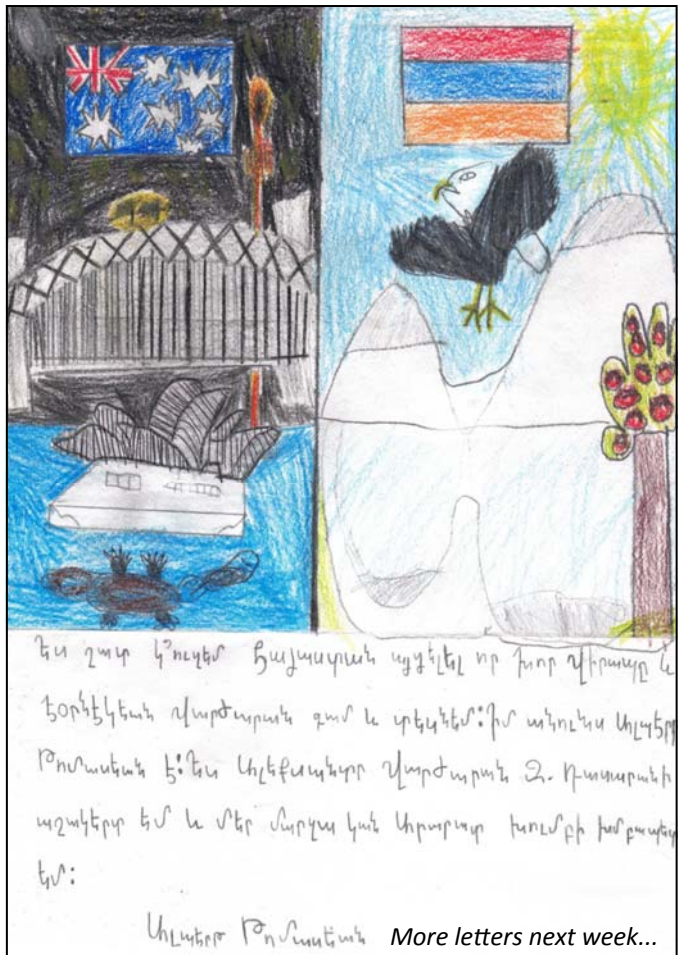 Ես շատ կ՚ուզեմ Հայաստան այցելել որ խոր Վիրապը և
Էօրնէկեան վարժարան գամ և տեսնեմ: Իմ անունս Ալպէրթ
Թովմասեան է: Ես Ալեքսանտր վարժարան Զ. Դասարանի
աշակերտ եմ և մեր մարզա կան Արարատ խումբի խմբապետ
եմ:
Ալպերթ Թովմասեան More letters next week...